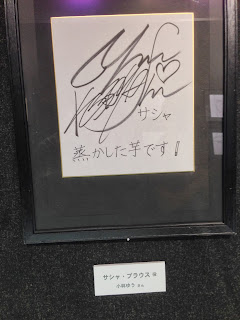 サシャ
蒸かした芋です!
サシャ・ブラウス 役
小林ゆう さん